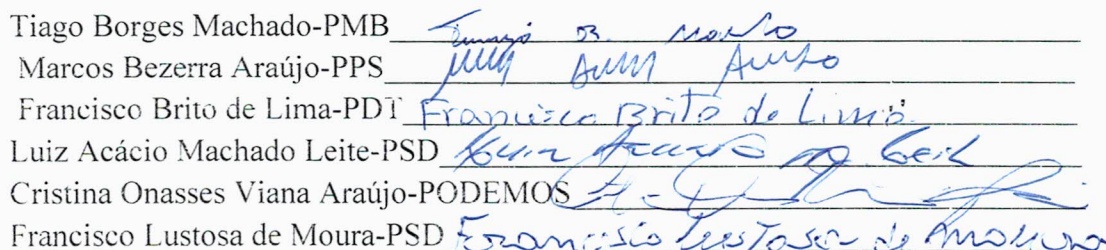 Tiago Borges Machado-PMB
Marcos Bezerra Araújo-PPS
Francisco Brito de Lima-PDT Francisco Brito de Lima
Luiz Acácio Machado Leite-PSD
Cristina Onasses Viana Araújo-PODEMOS
Francisco Lustosa de Moura-PSD Francisco Lustosa de Moura